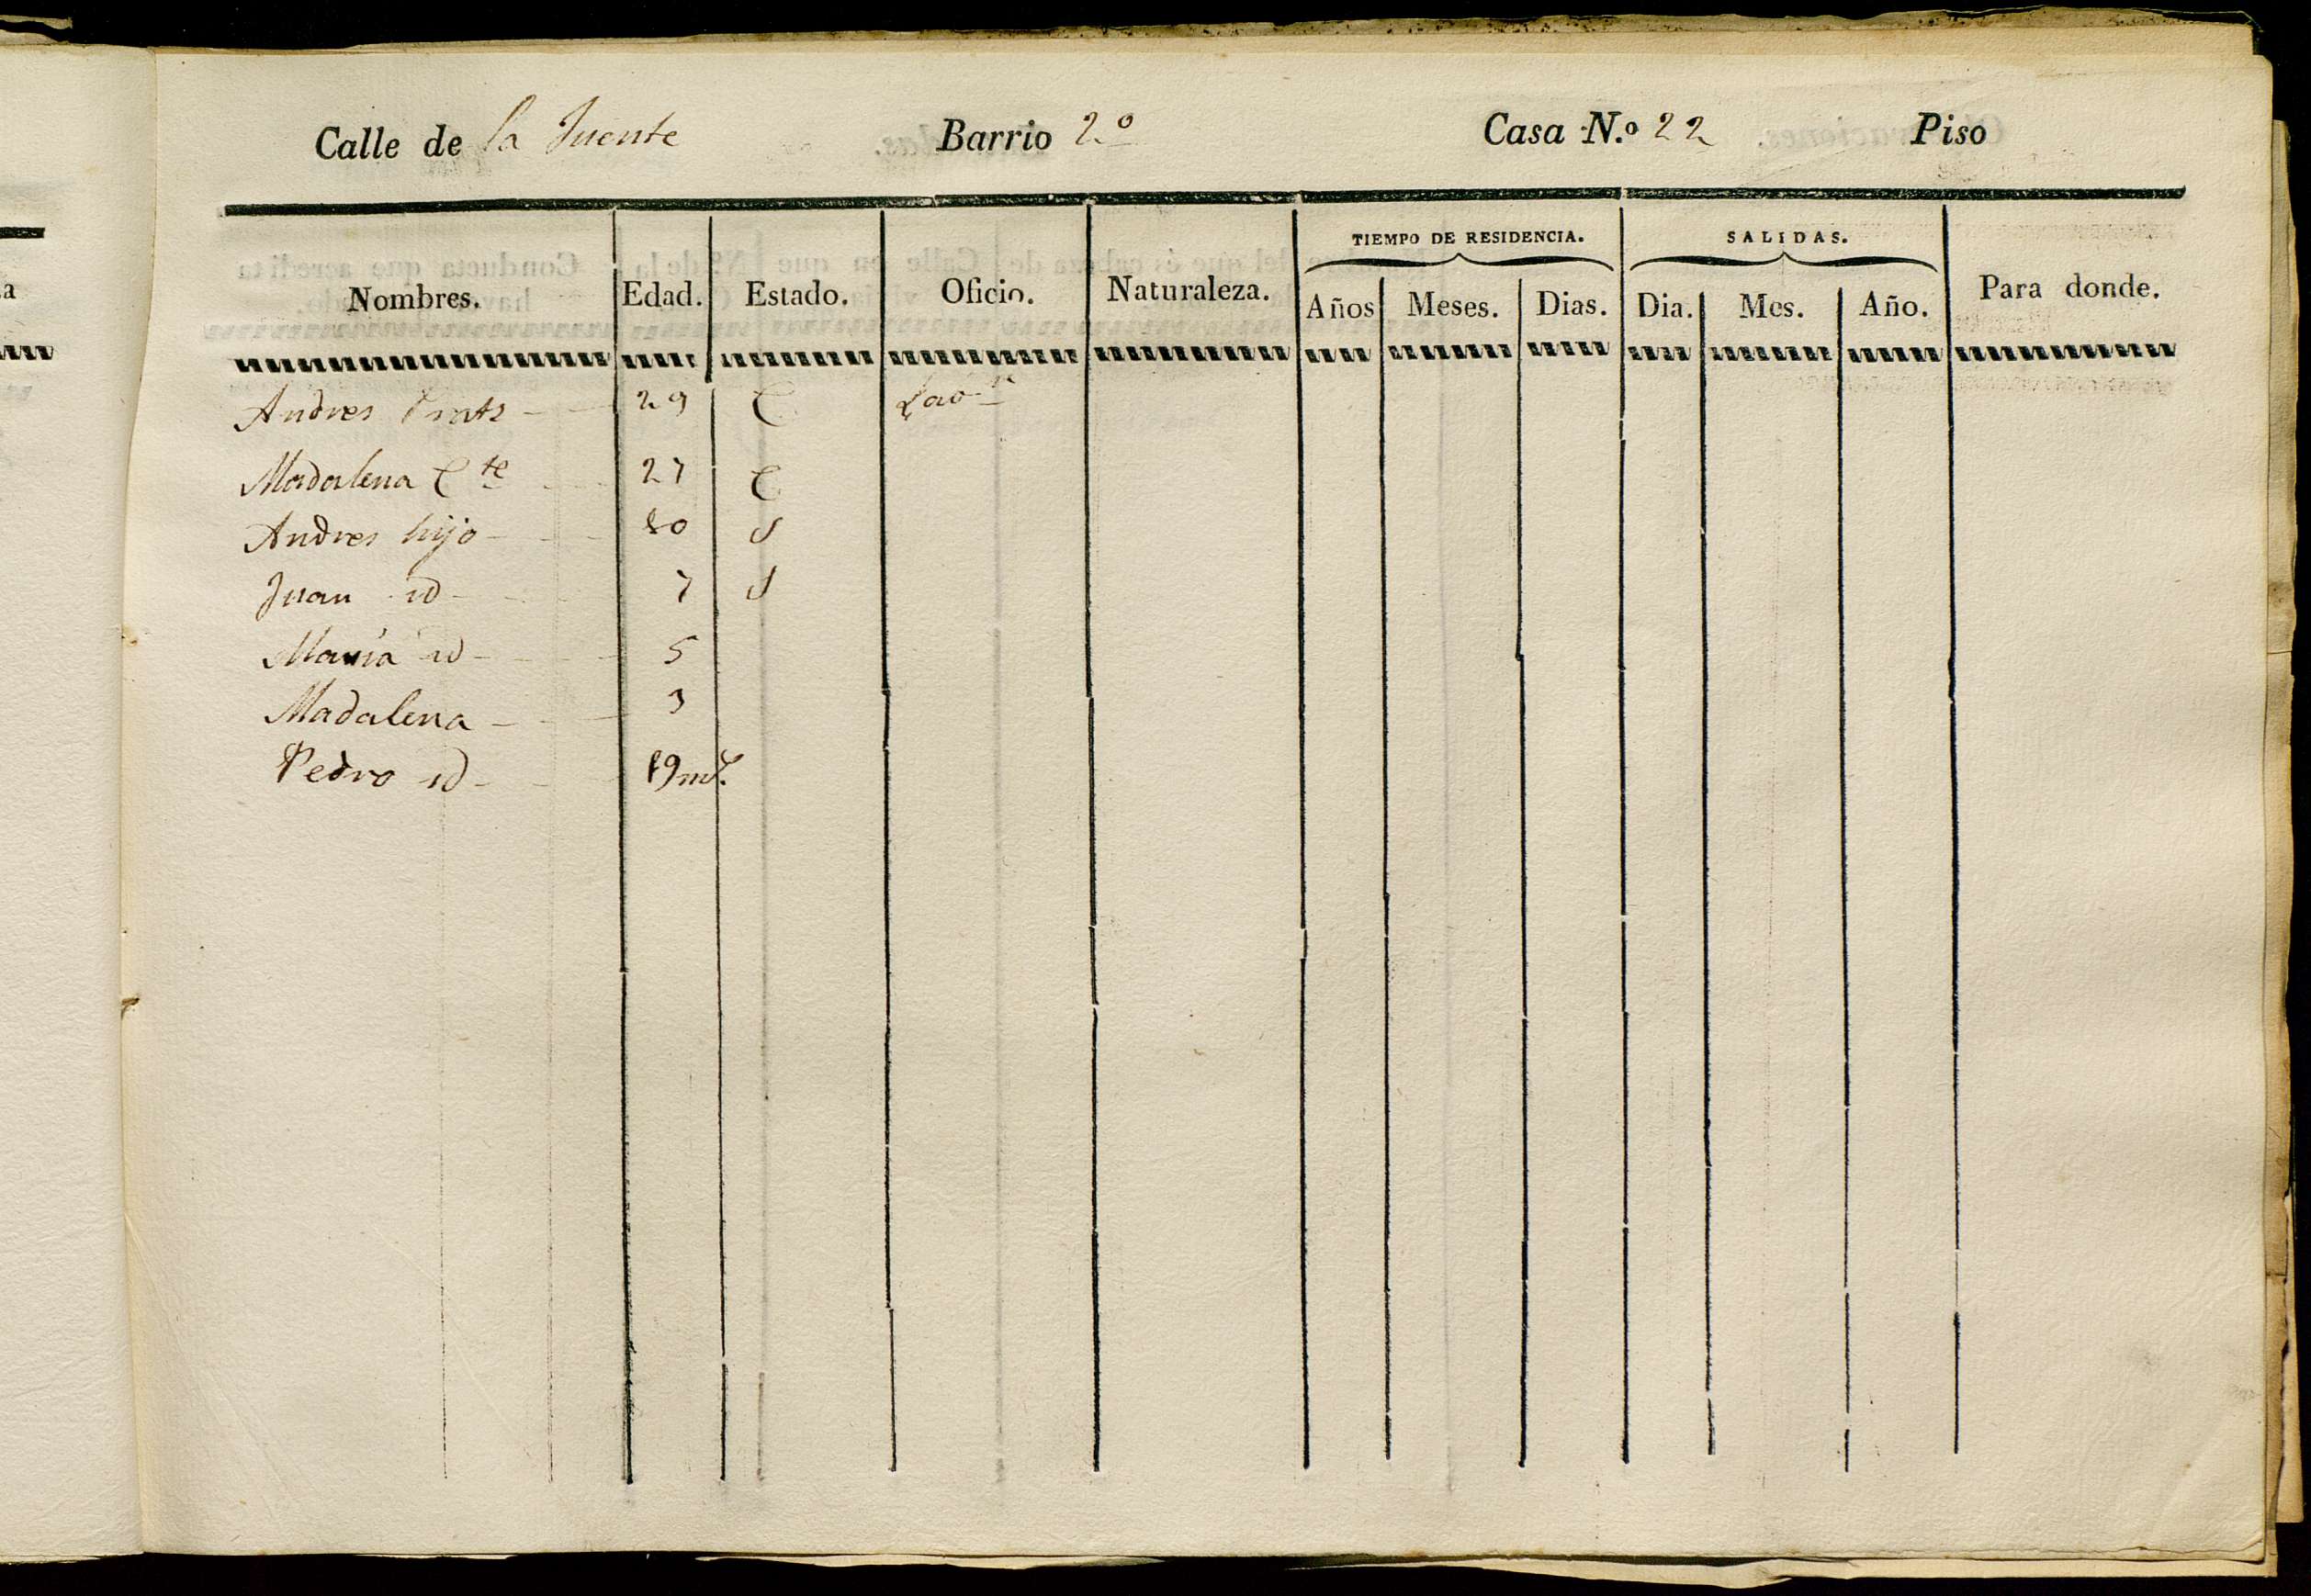 Calle de la Fuente Barrio 2.º Casa N.º 22 Piso
TIEMPO DE RESIDENCIA. SALIDAS.
Nombres. Edad. Estado. Oficio. Naturaleza. Años Meses. Dias. Dia. Mes. Año. Para donde.
Andres Prats 29 C Labr
Madalena C te 27 C
Andres hijo 10 S
Juan id 7 S
María id 5
Madalena 3
Pedro id 19 ms.